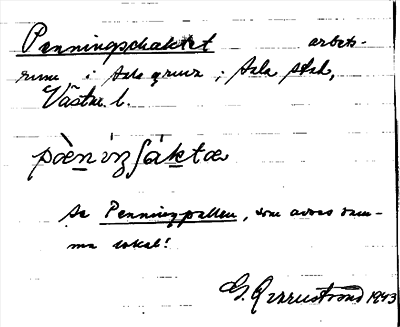 Penningschaktet arbets-
rum i Sala gruva i Sala stad,
Västm. l.
pæ̀niŋʃáktæ
Se Penningpallen, som avses sam-
ma lokal!
G. 1943